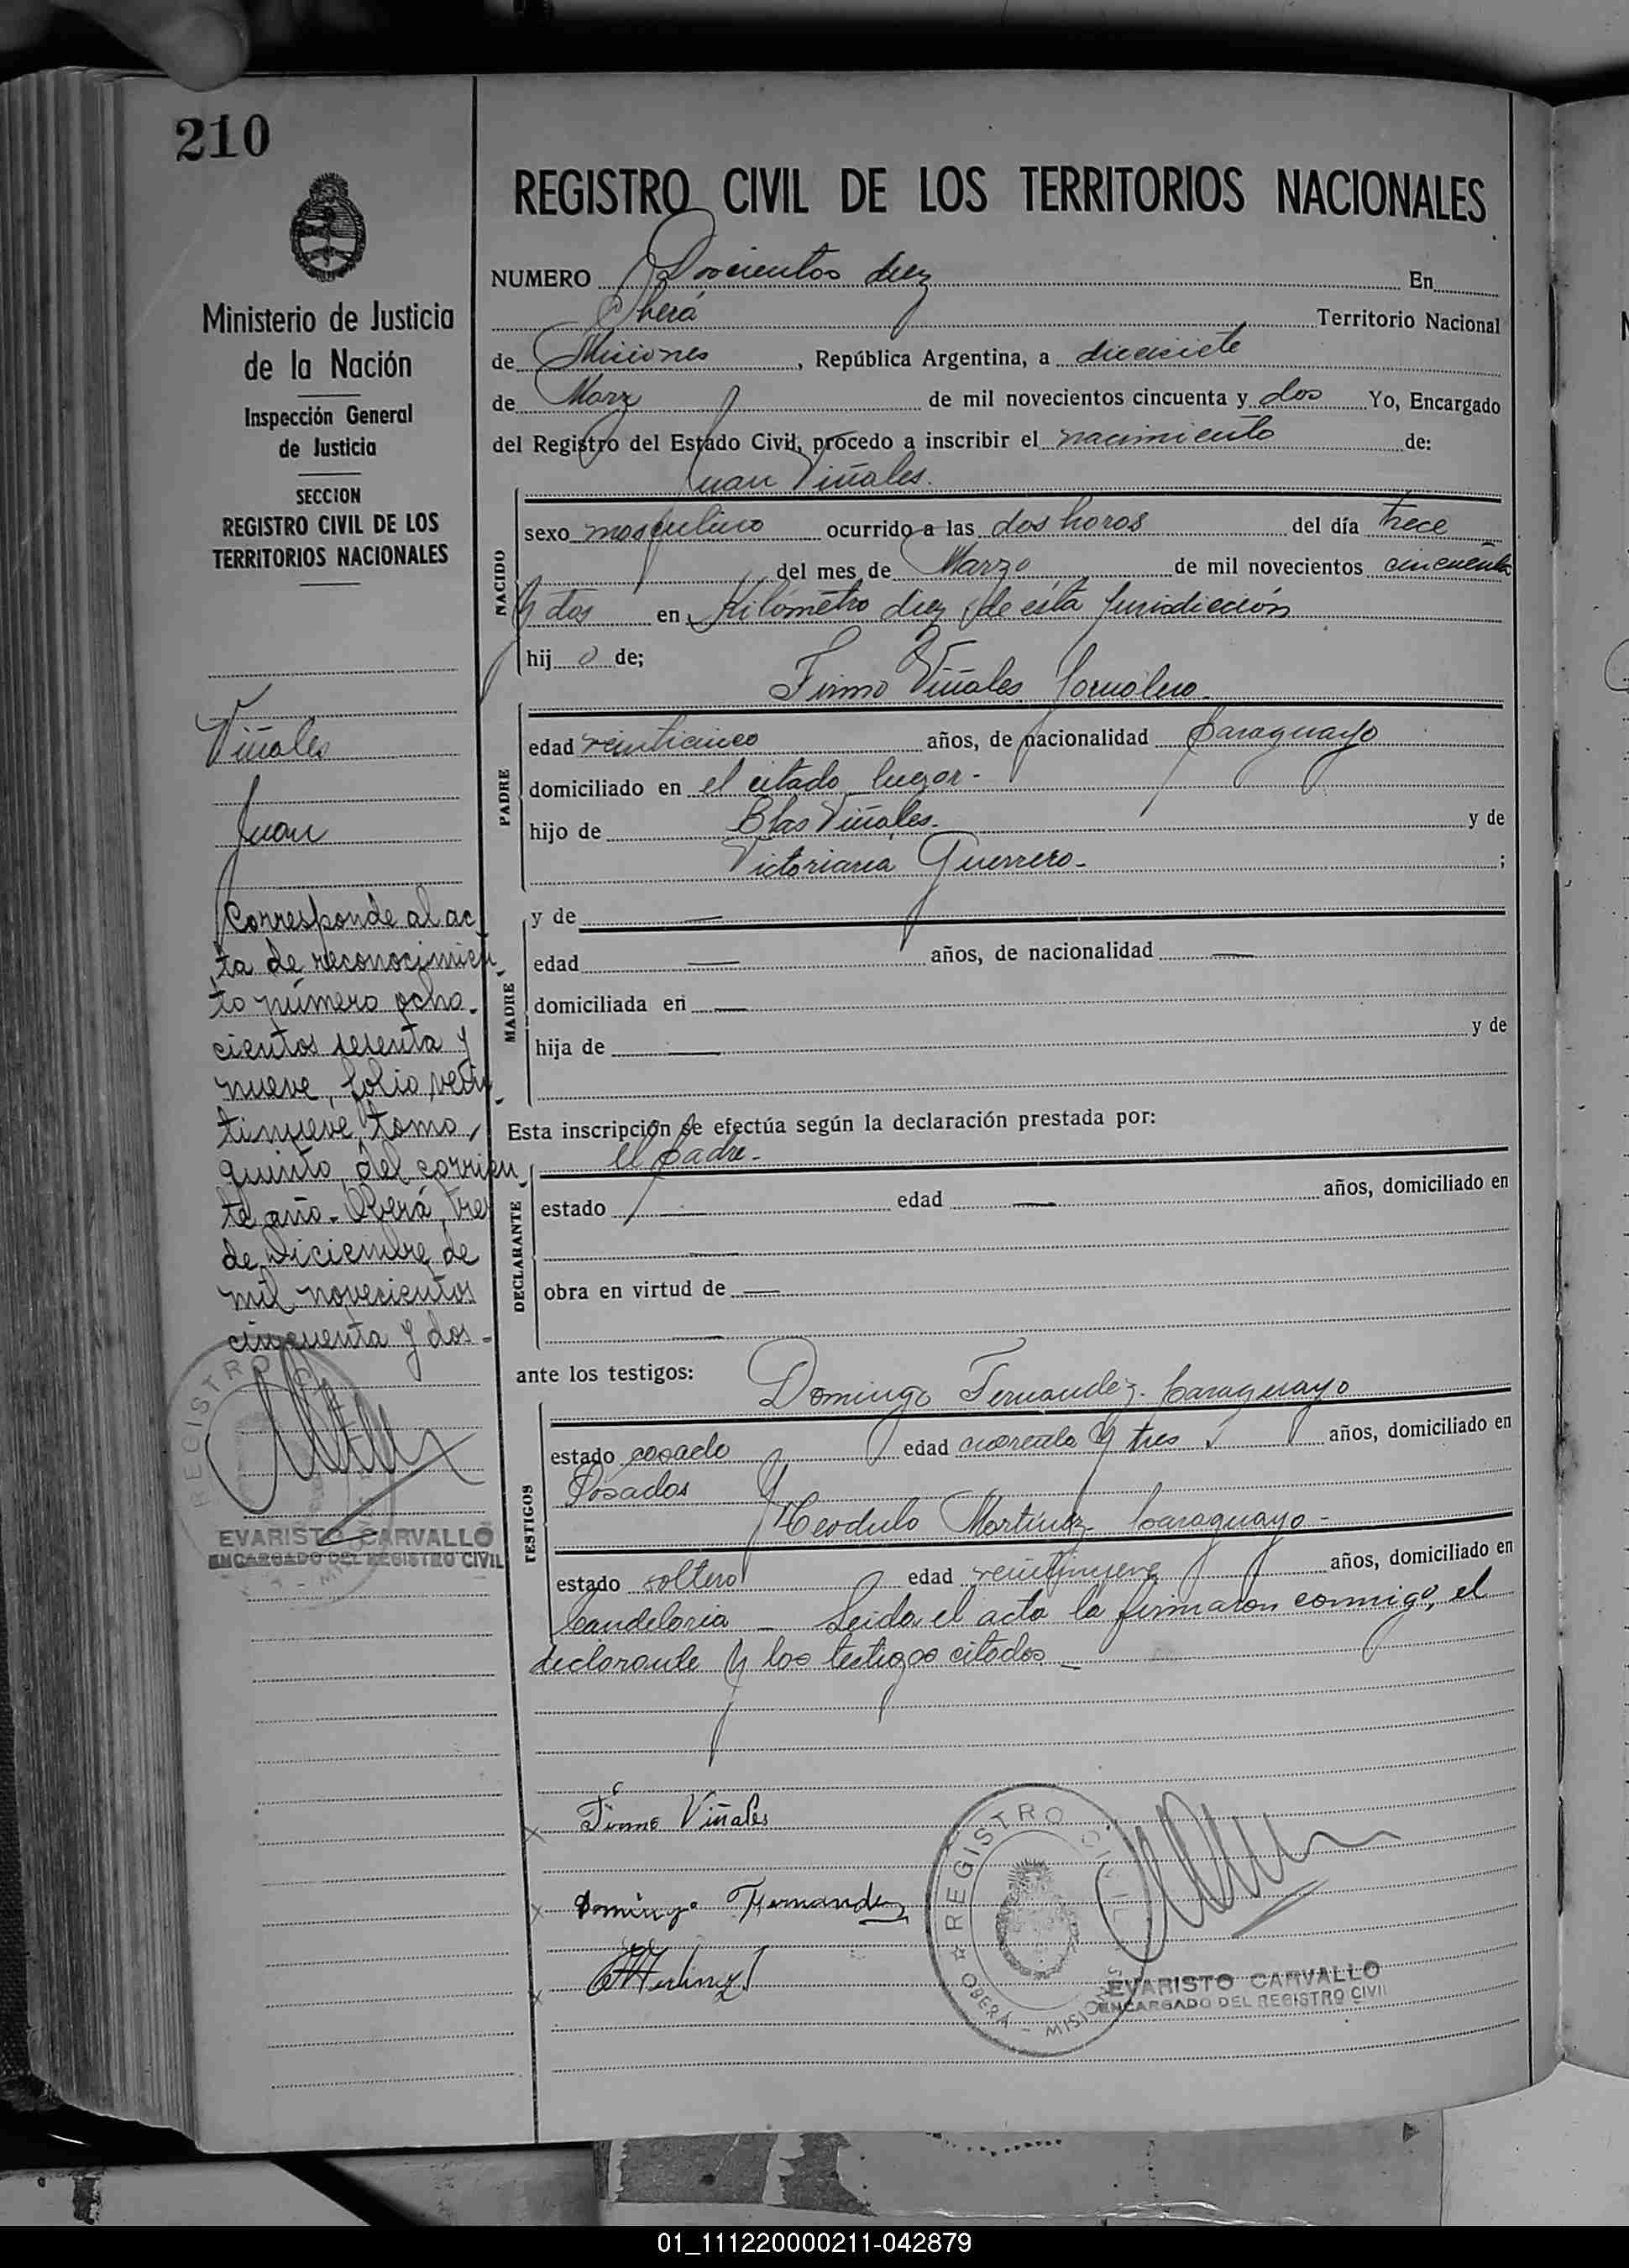 210
Ministerio de Justicia
de la Nación
Inspección General
de Justicia
SECCION
REGISTRO CIVIL DE LOS
TERRITORIOS NACIONALES
Viñales
Juan
Corresponde al ac
ta de reconocimien
to número ocho-
cientos sesenta y
nueve, folio vein
tinueve, tomo,
quinto, del corrien
te año. Oberá, tres
de Diciembre de
mil novecientos
cincuenta y dos-
EVARISTO CARVALLO
ENCARGADO DEL REGISTRO CIVIL
REGISTRO CIVIL DE LOS TERRITORIOS NACIONALES
NUMERO Doscientos diez En
Oberá Territorio Nacional
de Misiones, República Argentina, a diecisiete
de Marzo de mil novecientos cincuenta y dos Yo, Encargado
del Registro del Estado Civil, procedo a inscribir el nacimiento de:
Juan Viñales.
NACIDO
sexo masculino ocurrido a las dos horas del día trece
del mes de Marzo de mil novecientos cincuenta
y dos en Kilómetro diez de esta jurisdicción
hijo de;
Firmo Viñales Jornalero-
PADRE
edad veinticinco años, de nacionalidad Paraguayo
domiciliado en el citado lugar-
hijo de Blas Viñales- y de
Victoriana Guerrero- ;
MADRE
y de —
edad — años, de nacionalidad —
domiciliada en —
hija de — y de
Esta inscripción se efectúa según la declaración prestada por:
el padre-
DECLARANTE
estado — edad — años, domiciliado en
—
obra en virtud de —
—
ante los testigos:
Domingo Fernandez- Paraguayo
TESTIGOS
estado casado edad cuarenta y tres años, domiciliado en
Posadas y
Teodulo Martinez- Paraguayo-
estado soltero edad veintinueve años, domiciliado en
Candelaria - Leida el acta la firmaron conmigo, el
declarante y los testigos citados-
x Firmo Viñales
x Domingo Fernandez
x
REGISTRO CIVIL
OBERÁ - MISIONES
EVARISTO CARVALLO
ENCARGADO DEL REGISTRO CIVIL
01_111220000211-042879